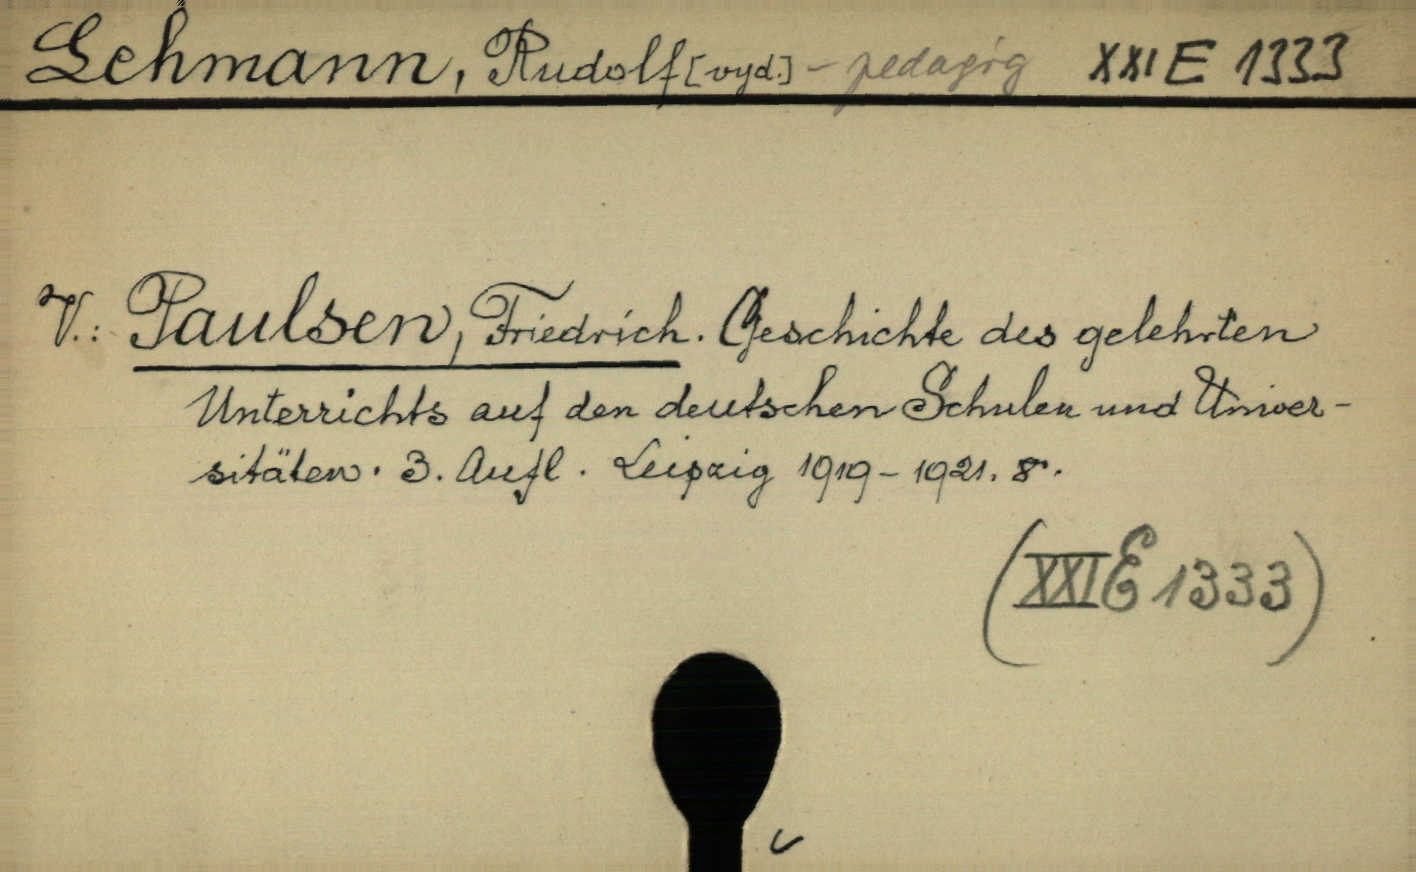 Lehmann, Rudolf [vyd.] - pedagóg XXI E 1333
V.: Paulsen, Friedrich. Geschichte des gelehrten
Unterrichts auf den deutschen Schulen und Univer-
sitäten. 3. Aufl. Leipzig 1919-1921. 8°.
(XXI E 1333)